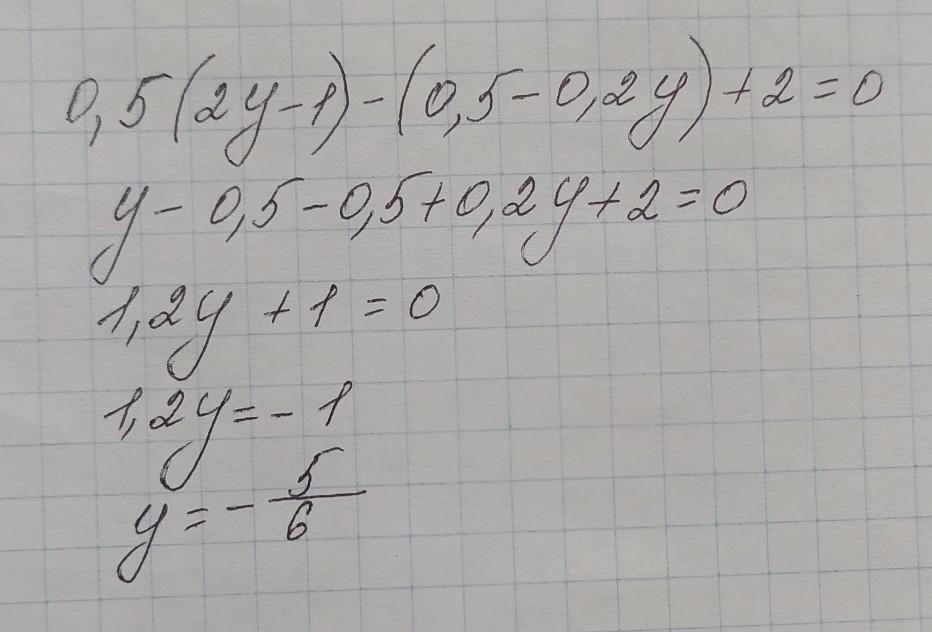 0,5(2y-1)-(0,5-0,2y)+2=0
y-0,5-0,5+0,2y+2=0
1,2y+1=0
1,2y=-1
y=-5/6